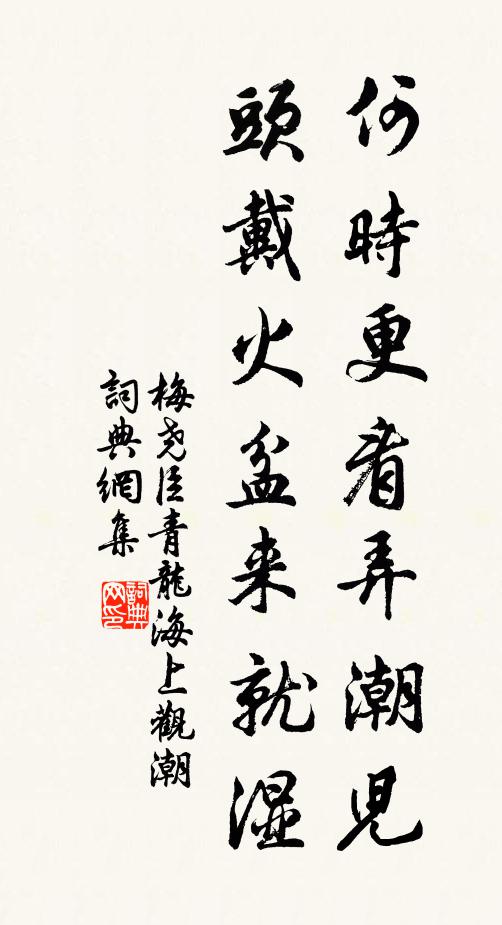 何時更看弄潮児
頭戴火盆来就濕
梅堯臣青龍海上觀潮
詞典網集
詞典网印